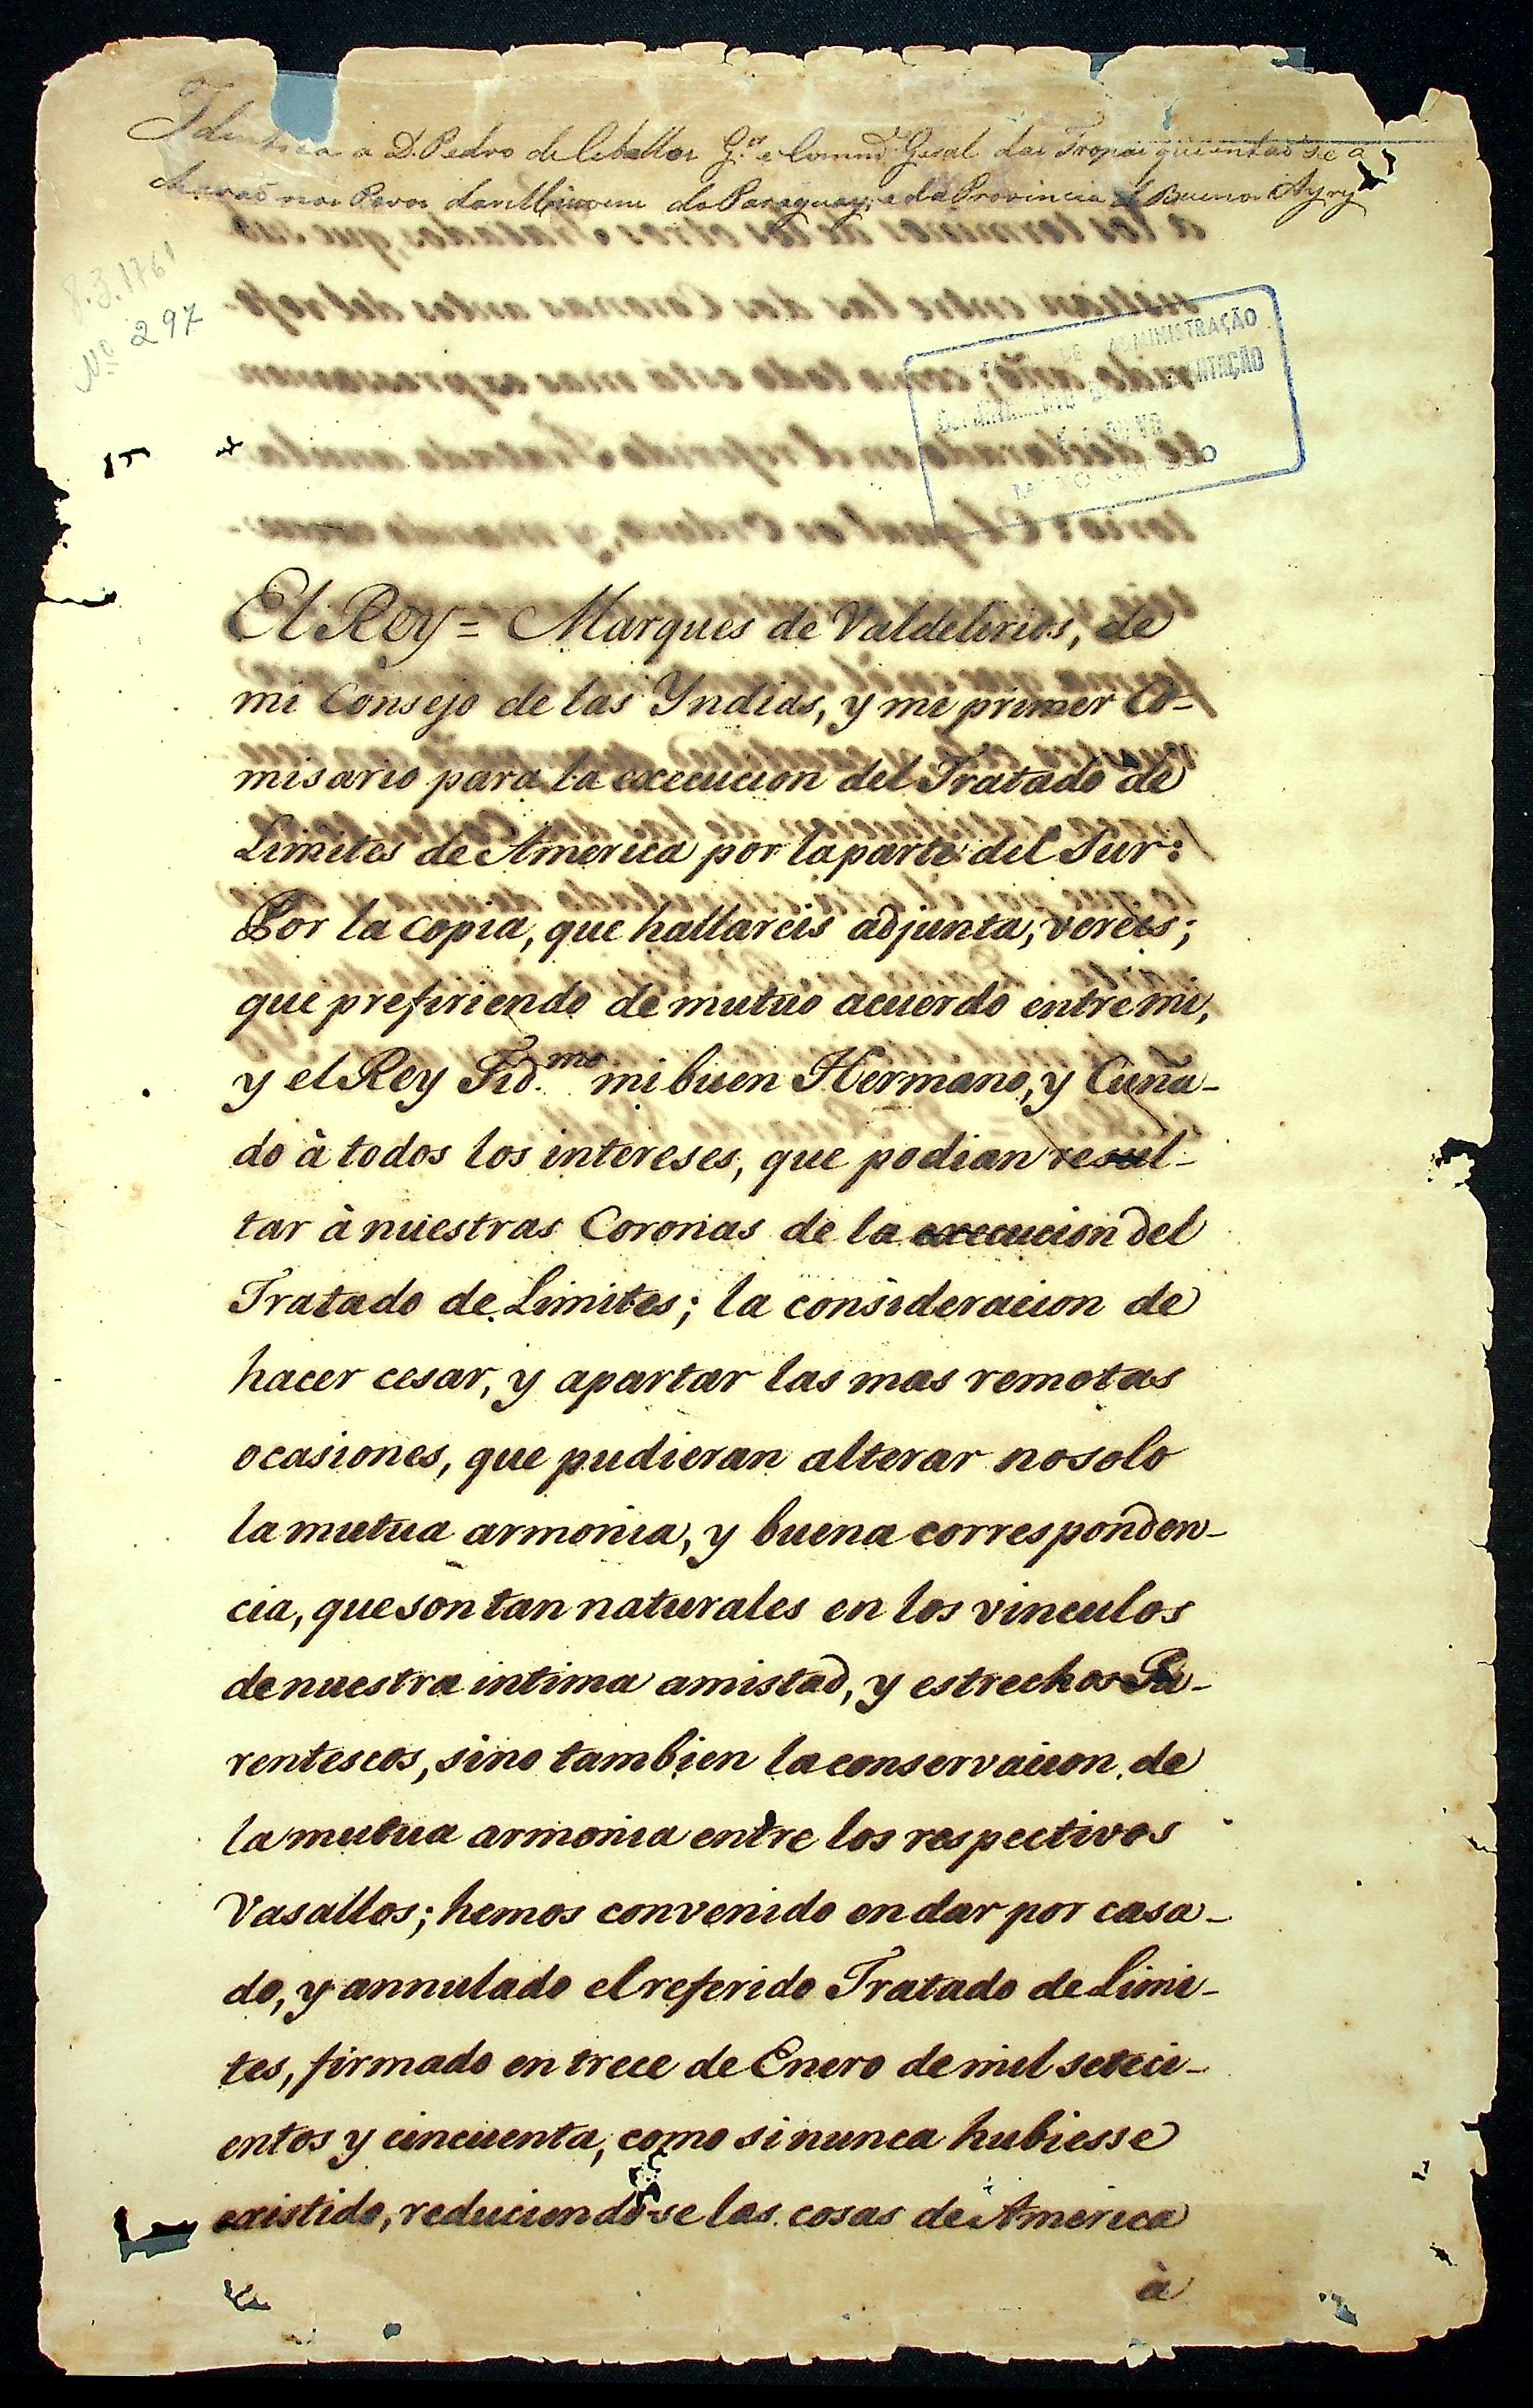 Identica a D. Pedro de Ceballos G.or e Comm.d Geral das Tropas que entaõ se a
chavaõ nos Povos das Missoens do Paraguay, e da Provincia de Buenos Ayres
8.3.1761
Nº 297
ADMINISTRAÇÃO
MATO GROSSO
El Rey = Marques de Valdelirios, de
mi Consejo de las Yndias, y mi primer Co-
misario para la execucion del Tratado de
Limites de America por la parte del Sur:
Por la copia, que hallareis adjunta, vereis;
que prefiriendo de mutuo acuerdo entre mi,
y el Rey Fid.mo mi buen Hermano, y Cuña-
do à todos los intereses, que podian resul-
tar à nuestras Coronas de la execucion del
Tratado de Limites; la consideracion de
hacer cesar, y apartar las mas remotas
ocasiones, que pudieran alterar no solo
la mutua armonia, y buena corresponden-
cia, que son tan naturales en los vinculos
de nuestra intima amistad, y estrechos Pa-
rentescos, sino tambien la conservacion de
la mutua armonia entre los respectivos
Vasallos; hemos convenido en dar por casa-
do, y annulado el referido Tratado de Limi-
tes, firmado en trece de Enero de mil setesi-
entos y cincuenta, como si nunca hubiesse
existido, reduciendo-se las cosas de America
à